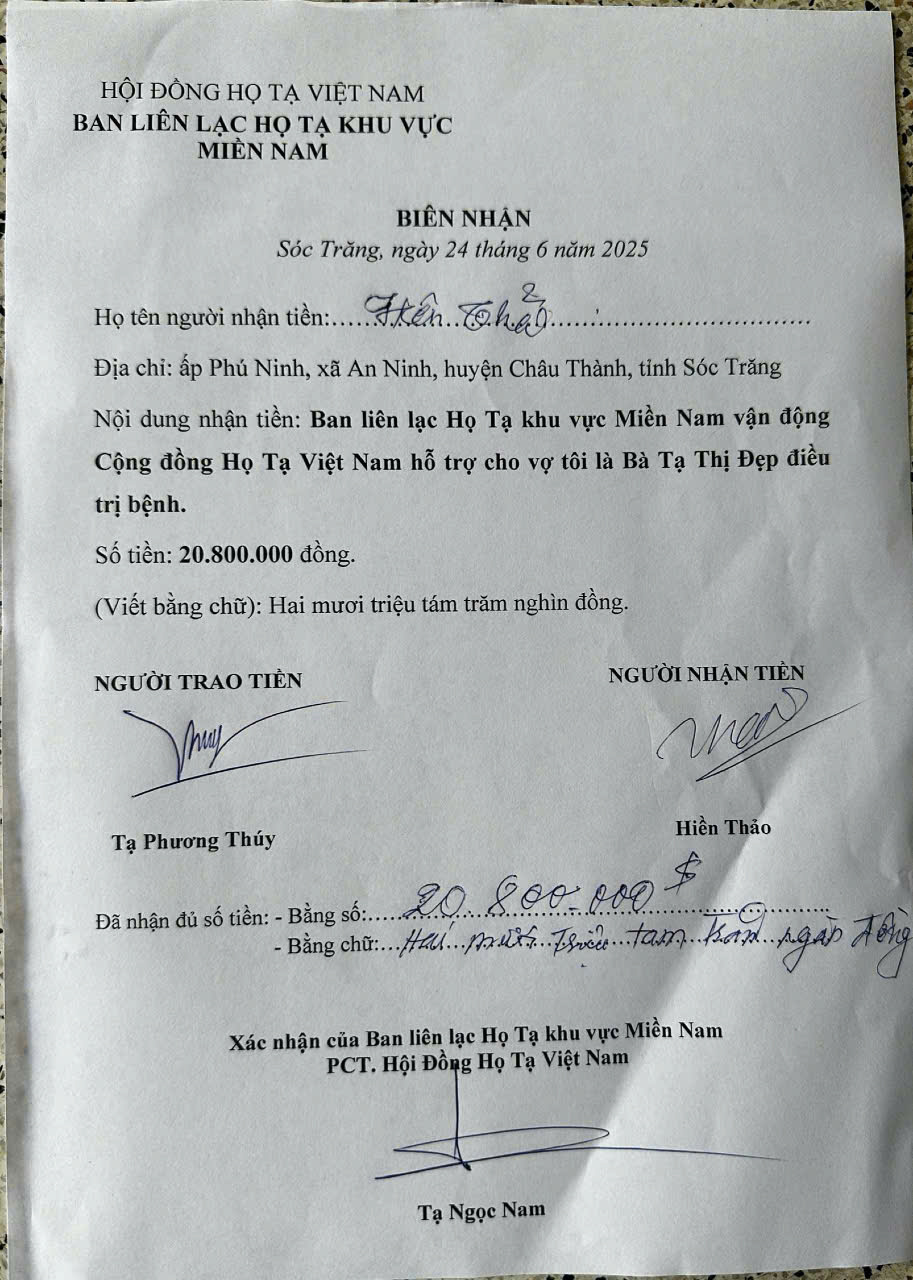 HỘI ĐỒNG HỌ TẠ VIỆT NAM
BAN LIÊN LẠC HỌ TẠ KHU VỰC
MIỀN NAM
BIÊN NHẬN
Sóc Trăng, ngày 24 tháng 6 năm 2025
Họ tên người nhận tiền:....Hiền Thảo....
Địa chỉ: ấp Phú Ninh, xã An Ninh, huyện Châu Thành, tỉnh Sóc Trăng
Nội dung nhận tiền: Ban liên lạc Họ Tạ khu vực Miền Nam vận động
Cộng đồng Họ Tạ Việt Nam hỗ trợ cho vợ tôi là Bà Tạ Thị Đẹp điều
trị bệnh.
Số tiền: 20.800.000 đồng.
(Viết bằng chữ): Hai mươi triệu tám trăm nghìn đồng.
NGƯỜI TRAO TIỀN
NGƯỜI NHẬN TIỀN
Thuy
Thao
Tạ Phương Thúy
Hiền Thảo
Đã nhận đủ số tiền: - Bằng số:....20.800.000 $....
- Bằng chữ:...Hai mươi triệu tám trăm ngàn đồng
Xác nhận của Ban liên lạc Họ Tạ khu vực Miền Nam
PCT. Hội Đồng Họ Tạ Việt Nam
Tạ Ngọc Nam